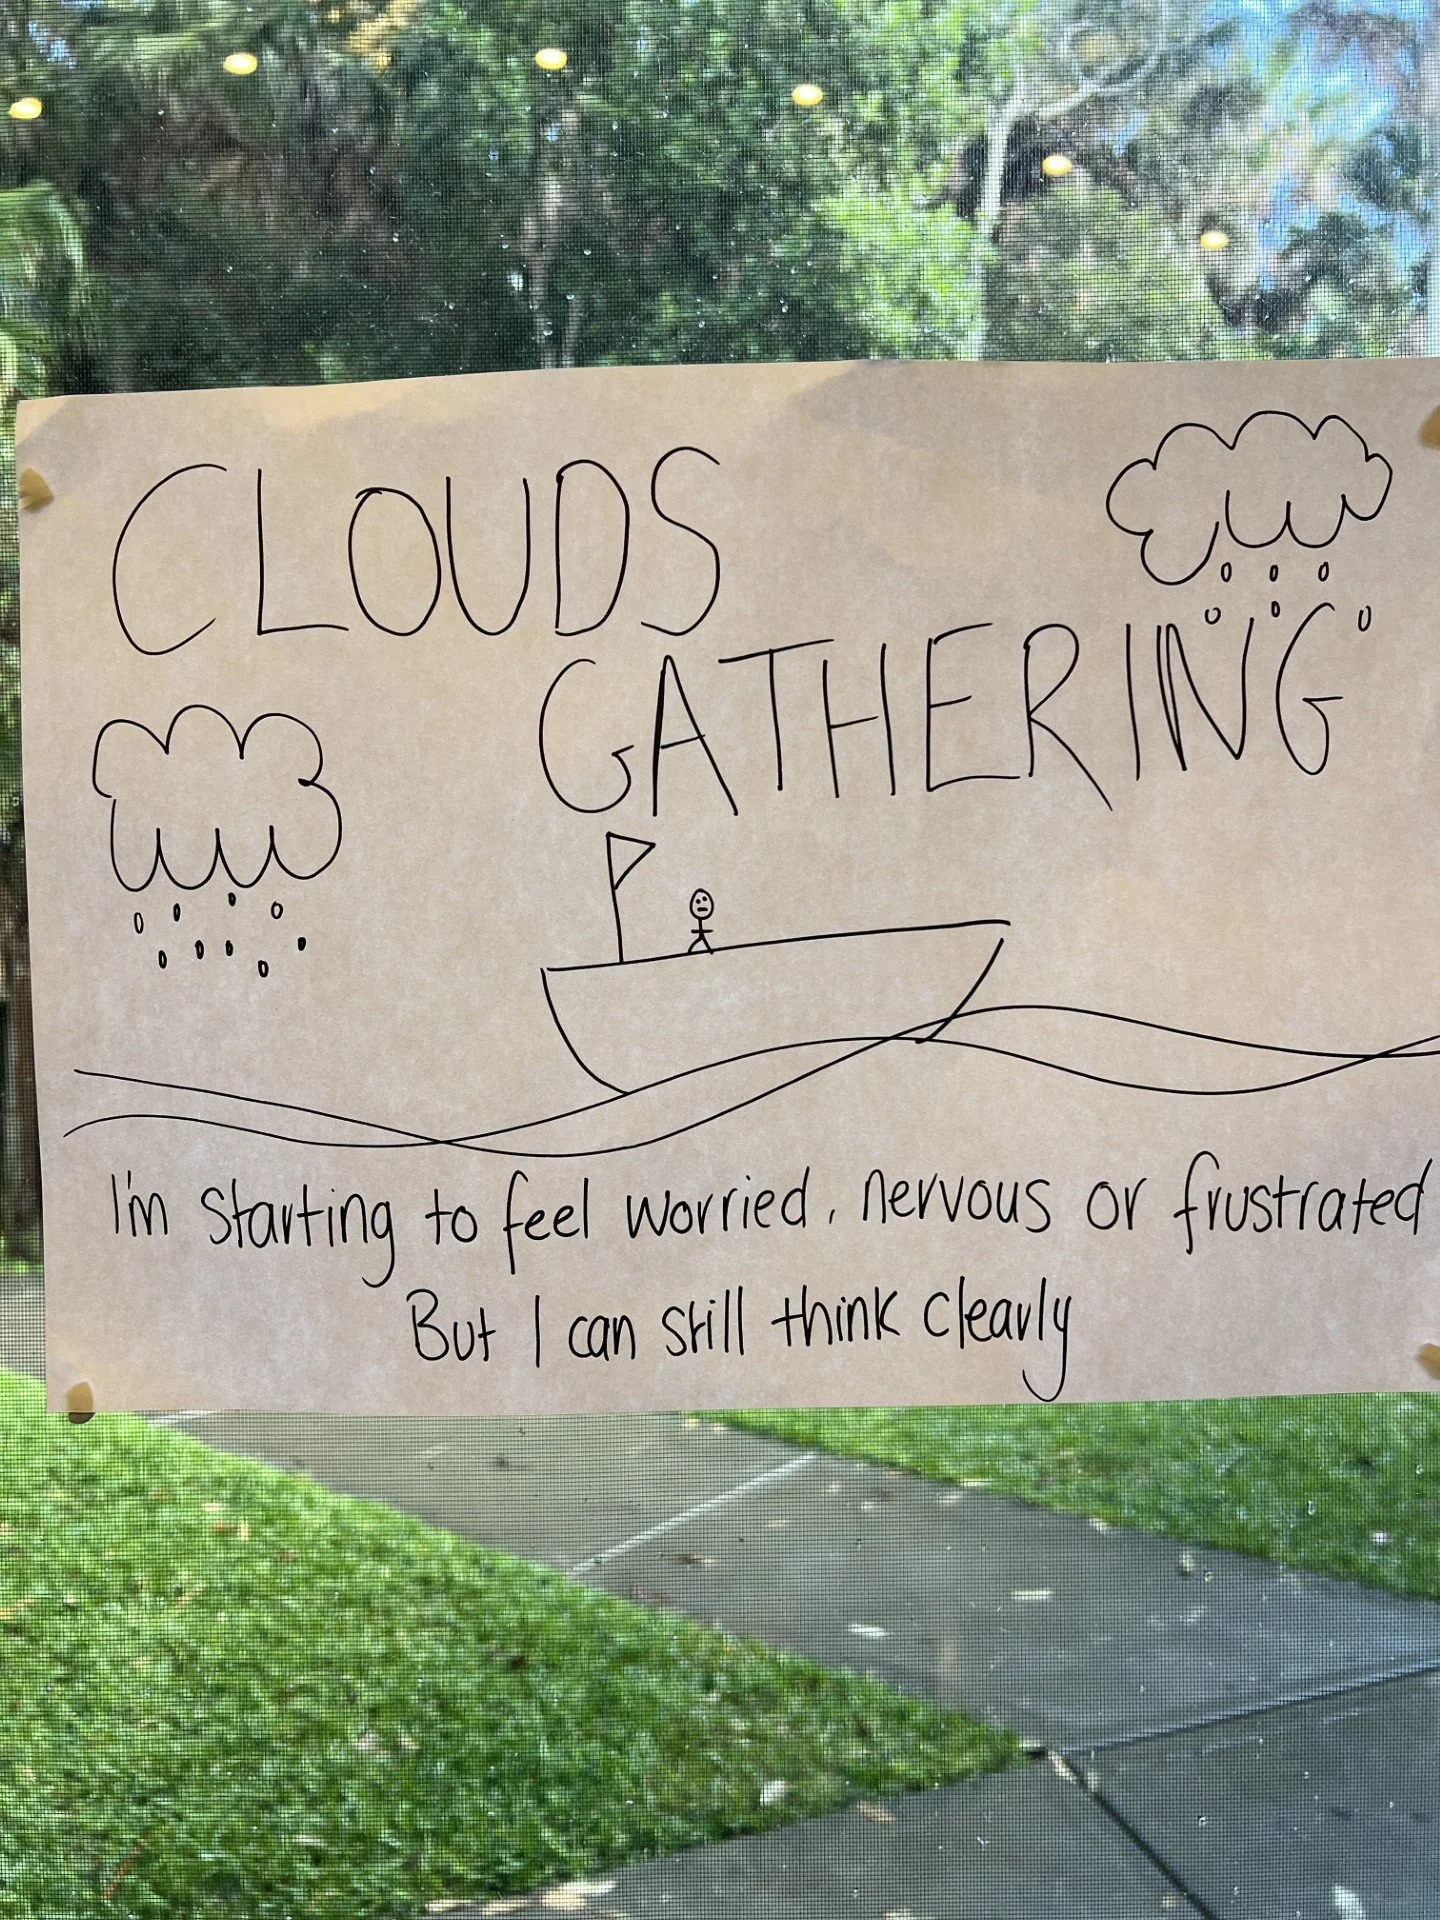 CLOUDS
GATHERING
I'm starting to feel worried, nervous or frustrated
But I can still think clearly